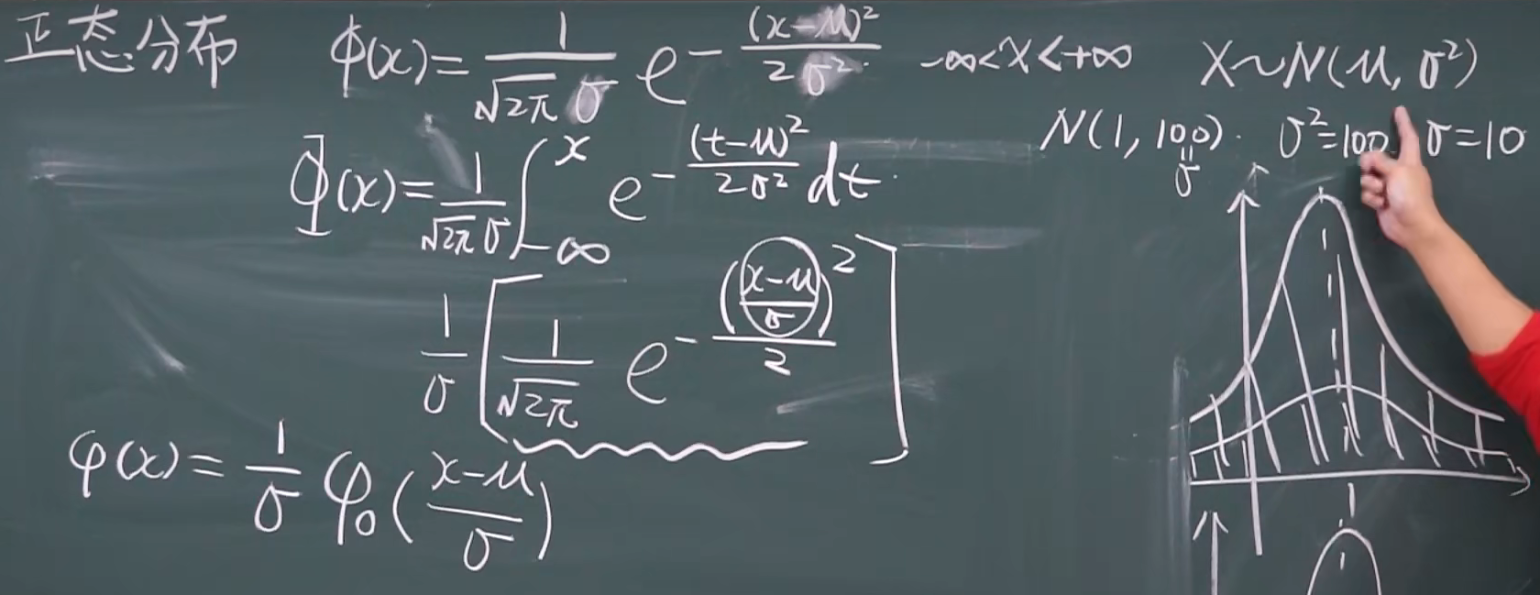 正态分布 φ(x)=1/(√2π σ) e^-(x-μ)²/(2σ²) -∞<x<+∞ X~N(μ, σ²)
N(1, 100). σ²=100 σ=10
σ
Φ(x)=1/(√2π σ) ∫_-∞^x e^-(t-μ)²/(2σ²) dt.
1/σ [1/√2π e^-((x-μ)/σ)²/2]
φ(x)=1/σ φ₀((x-μ)/σ)